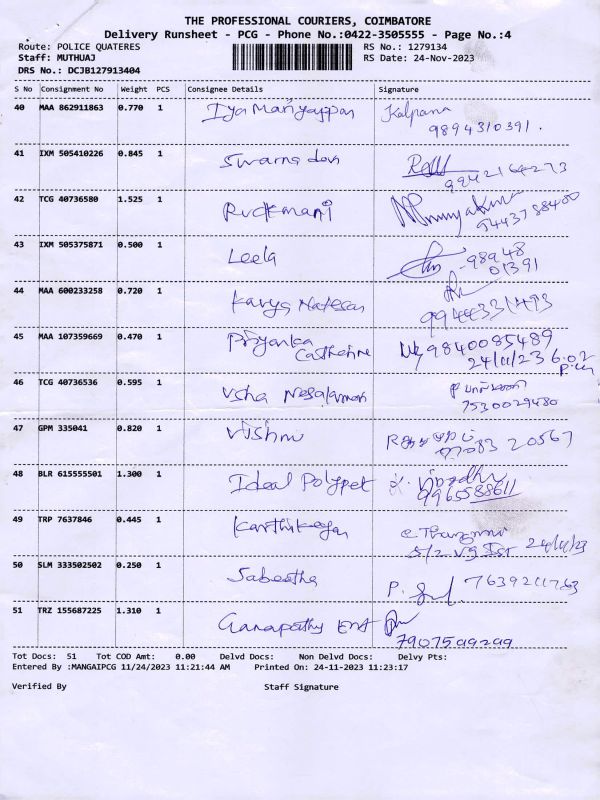 THE PROFESSIONAL COURIERS, COIMBATORE
Delivery Runsheet - PCG - Phone No.:0422-3505555 - Page No.:4
Route: POLICE QUATERES RS No.: 1279134
Staff: MUTHUAJ RS Date: 24-Nov-2023
DRS No.: DCJB127913404
S No Consignment No Weight PCS Consignee Details Signature
40 MAA 862911863 0.770 1 Iya Mariyappan Kalpana
9894310391.
41 IXM 505410226 0.845 1
9942164273
42 TCG 40736580 1.525 1 Rukmani
9443788400
43 IXM 505375871 0.500 1 Leela 98948
01391
44 MAA 600233258 0.720 1 Kavya Natesan
45 MAA 107359669 0.470 1 Priyanka 9840085489
Catherine 24/11/23 6.02
p.m
46 TCG 40736536 0.595 1 Usha
7530029480
47 GPM 335041 0.820 1 Vishnu
20567
48 BLR 615555501 1.300 1 Ideal Polypet
9965588611
49 TRP 7637846 0.445 1 Karthikeyan
24/11/23
50 SLM 333502502 0.250 1 Sabeetha P.
51 TRZ 155687225 1.310 1 Ganapathy Ent
Tot Docs: 51 Tot COD Amt: 0.00 Delvd Docs: Non Delvd Docs: Delvy Pts:
Entered By :MANGAIPCG 11/24/2023 11:21:44 AM Printed On: 24-11-2023 11:23:17
Verified By Staff Signature